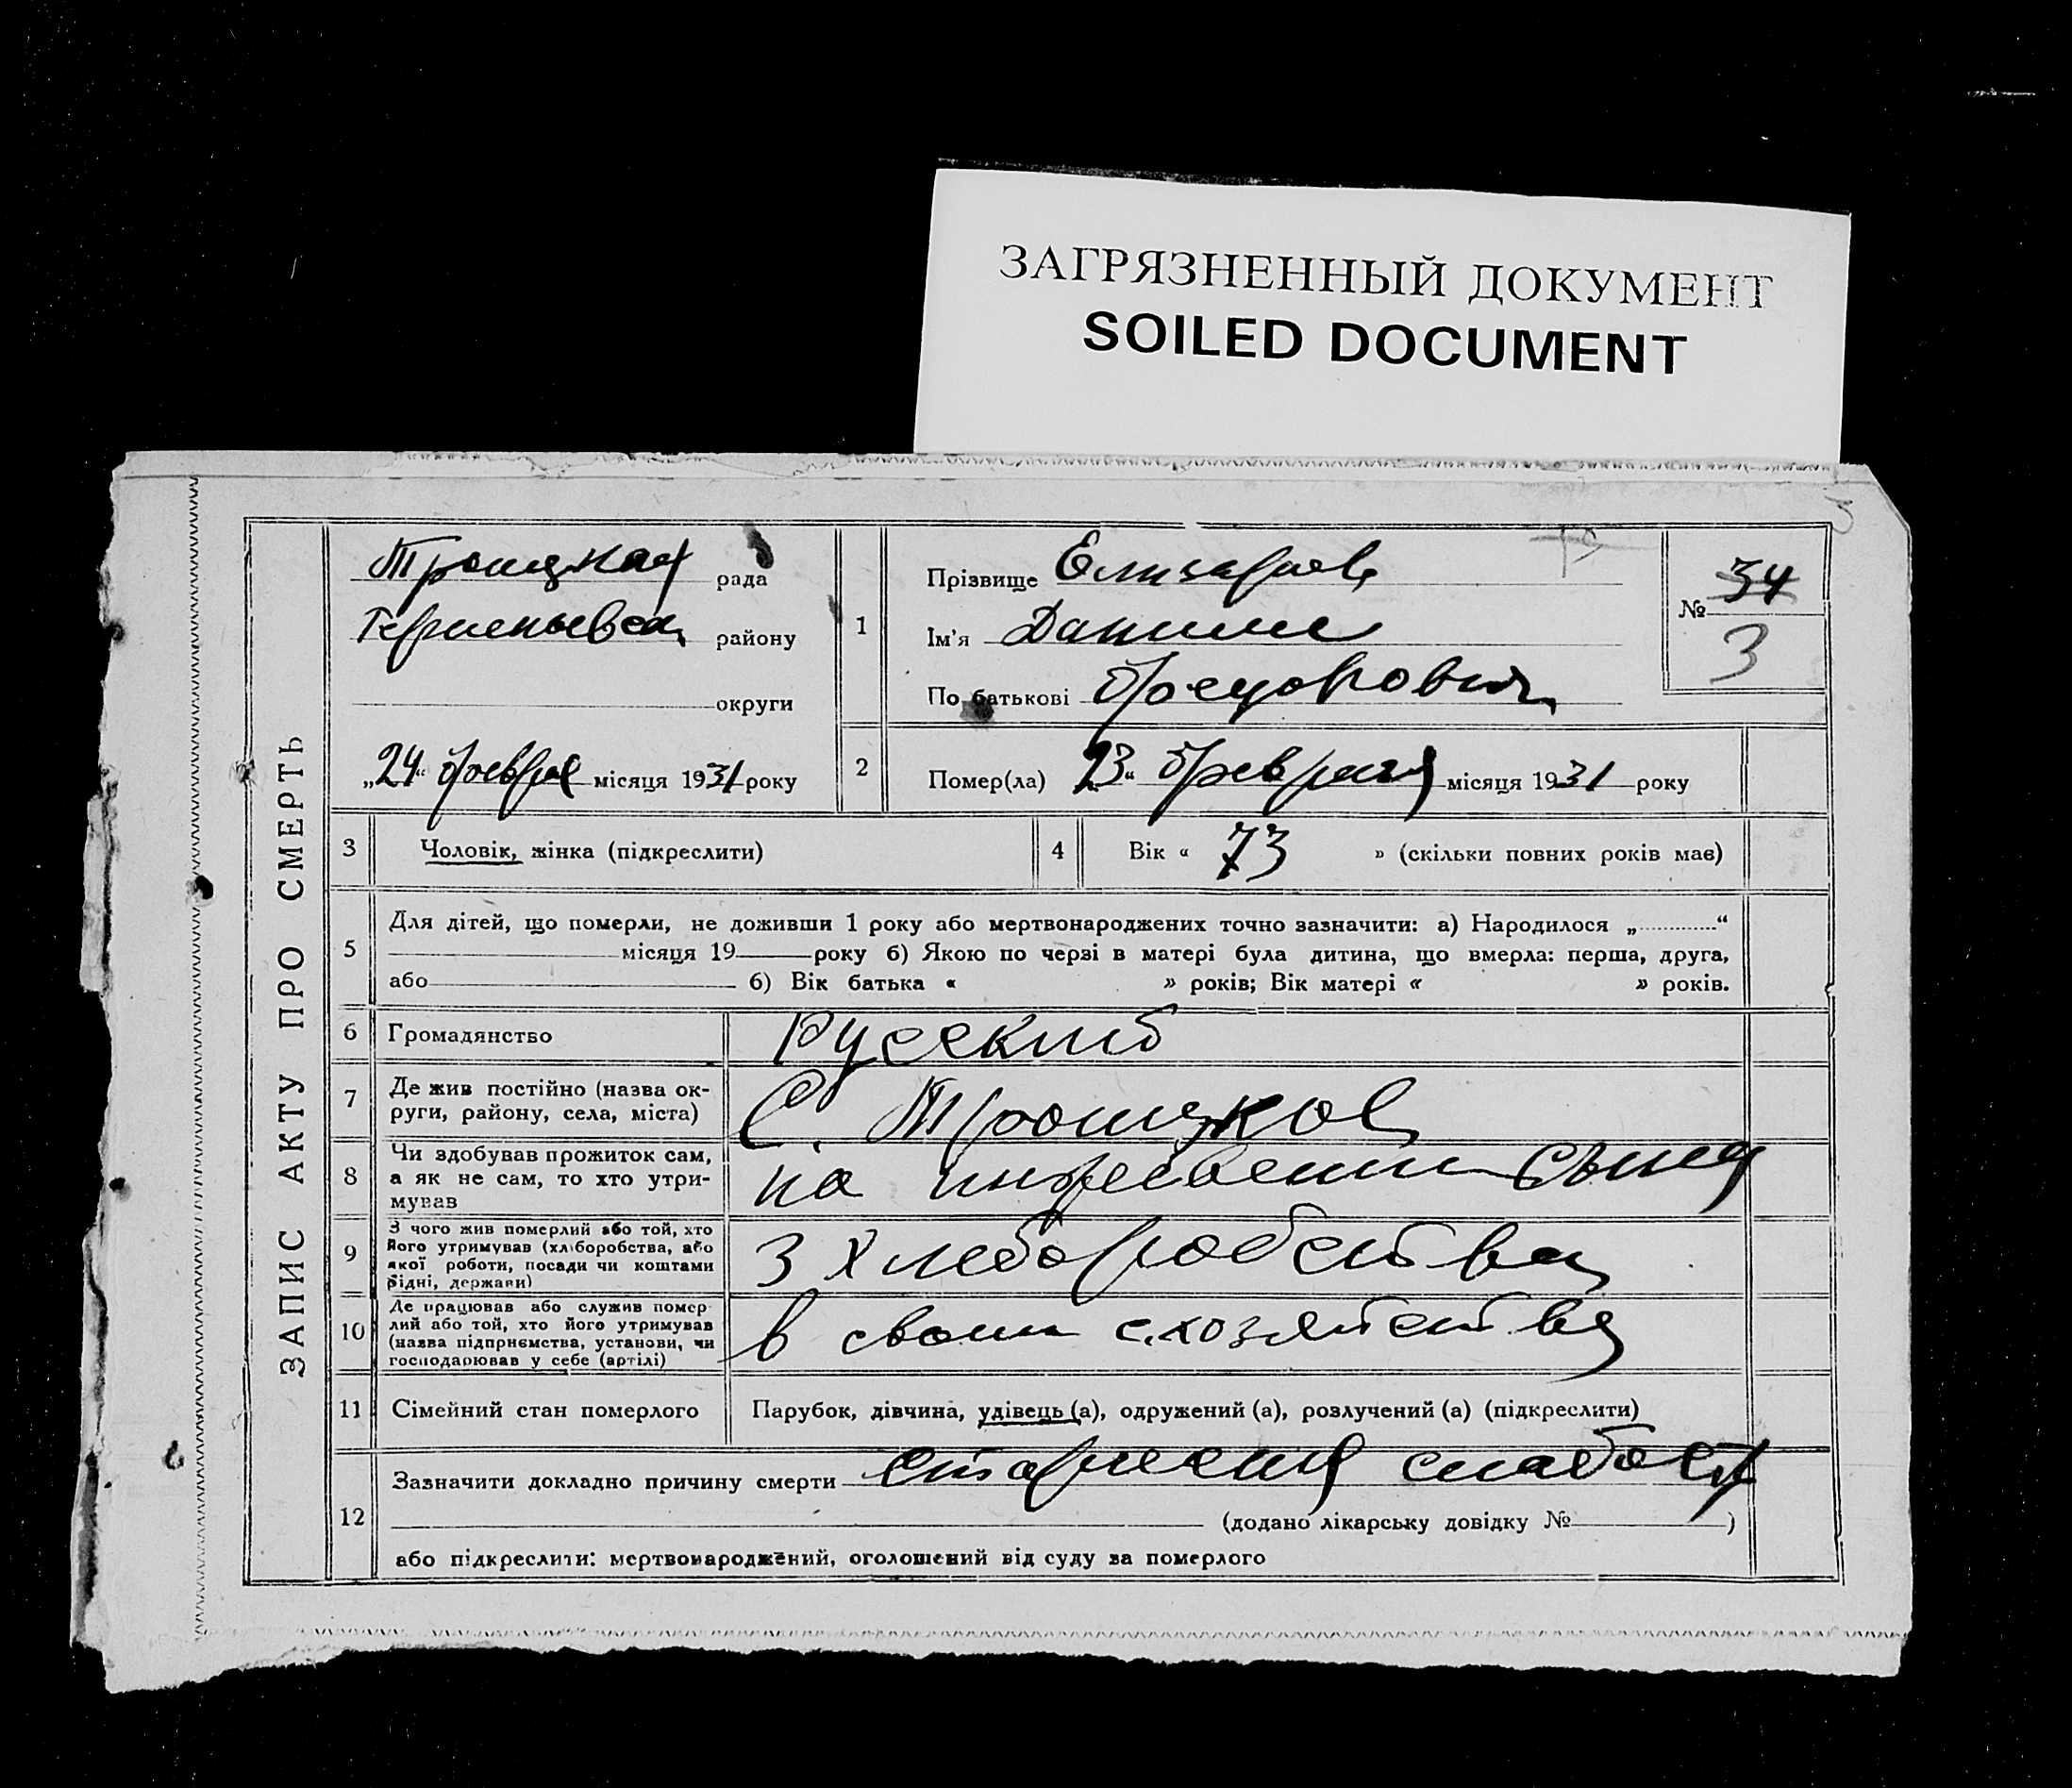 ЗАГРЯЗНЕННЫЙ ДОКУМЕНТ
SOILED DOCUMENT
ЗАПИС АКТУ ПРО СМЕРТЬ
Троицкая рада
району
округи
„24“ февра місяця 1931 року
1
Прізвище Елизаров
Ім'я Данил
По батькові Федорович
№ 34
3
2
Помер(ла) 23“ февраля місяця 1931 року
3
Чоловік, жінка (підкреслити)
4
Вік « 73 » (скільки повних років мав)
5
Для дітей, що померли, не доживши 1 року або мертвонароджених точно зазначити: а) Народилося „ “
місяця 19 року б) Якою по черзі в матері була дитина, що вмерла: перша, друга,
або б) Вік батька « » років; Вік матері « » років.
6
Громадянство
Русский
7
Де жив постійно (назва ок-
руги, району, села, міста)
С. Троицков
8
Чи здобував прожиток сам,
а як не сам, то хто утри-
мував
на сына
9
З чого жив померлий або той, хто
його утримував (хліборобства, або
якої роботи, посади чи коштами
рідні, держави)
З Хлеборобства
10
Де працював або служив помер-
лий або той, хто його утримував
(назва підприємства, установи, чи
господарював у себе (артілі)
в своим с.хозяйства
11
Сімейний стан померлого
Парубок, дівчина, удівець (а), одружений (а), розлучений (а) (підкреслити)
12
Зазначити докладно причину смерти слабость
(додано лікарську довідку № )
або підкреслити: мертвонароджений, оголошений від суду за померлого